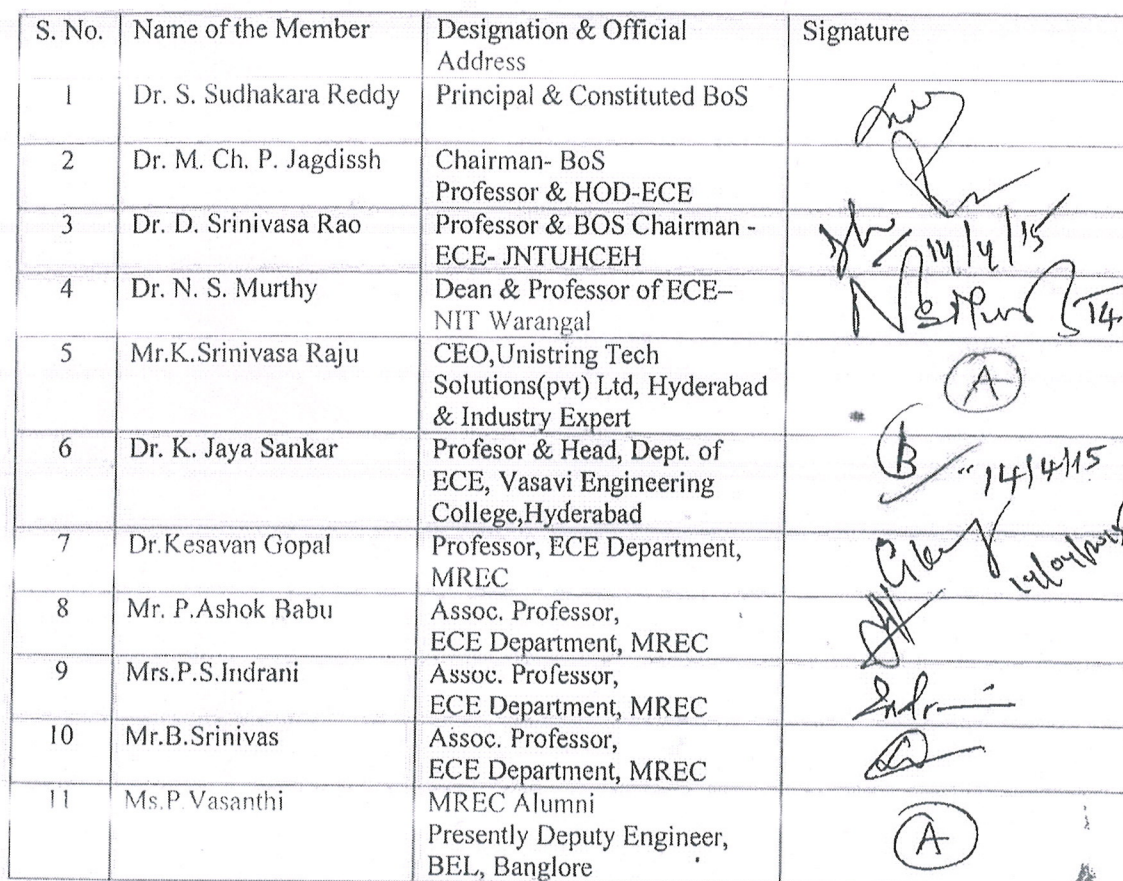 S. No. Name of the Member Designation & Official Signature
Address
1 Dr. S. Sudhakara Reddy Principal & Constituted BoS
2 Dr. M. Ch. P. Jagdissh Chairman- BoS
Professor & HOD-ECE
3 Dr. D. Srinivasa Rao Professor & BOS Chairman -
ECE- JNTUHCEH 14/4/15
4 Dr. N. S. Murthy Dean & Professor of ECE–
NIT Warangal 14
5 Mr.K.Srinivasa Raju CEO,Unistring Tech
Solutions(pvt) Ltd, Hyderabad A
& Industry Expert
6 Dr. K. Jaya Sankar Profesor & Head, Dept. of
ECE, Vasavi Engineering 14/4/15
College,Hyderabad
7 Dr.Kesavan Gopal Professor, ECE Department,
MREC 14/04/2015
8 Mr. P.Ashok Babu Assoc. Professor,
ECE Department, MREC
9 Mrs.P.S.Indrani Assoc. Professor,
ECE Department, MREC
10 Mr.B.Srinivas Assoc. Professor,
ECE Department, MREC
11 Ms.P.Vasanthi MREC Alumni
Presently Deputy Engineer, A
BEL, Banglore